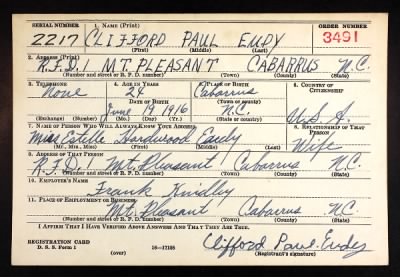 SERIAL NUMBER 1. NAME (Print) ORDER NUMBER
2217 CLIFFORD PAUL EUDY 3491
(First) (Middle) (Last)
2. ADDRESS (Print)
R.F.D. 1 MT. PLEASANT CABARRUS N.C.
(Number and street or R. F. D. number) (Town) (County) (State)
3. TELEPHONE 4. AGE IN YEARS 5. PLACE OF BIRTH 6. COUNTRY OF CITIZENSHIP
None 24 Cabarrus
DATE OF BIRTH (Town or county)
June 1916 N.C. U.S.A.
(Exchange) (Number) (Mo.) (Day) (Yr.) (State or country)
7. NAME OF PERSON WHO WILL ALWAYS KNOW YOUR ADDRESS 8. RELATIONSHIP OF THAT PERSON
Estelle Eudy Wife
(Mr., Mrs., Miss) (First) (Middle) (Last)
9. ADDRESS OF THAT PERSON
R.F.D. 1 Mt. Pleasant Cabarrus N.C.
(Number and street or R. F. D. number) (Town) (County) (State)
10. EMPLOYER'S NAME
Frank
11. PLACE OF EMPLOYMENT OR BUSINESS
Mt. Pleasant Cabarrus N.C.
(Number and street or R. F. D. number) (Town) (County) (State)
I AFFIRM THAT I HAVE VERIFIED ABOVE ANSWERS AND THAT THEY ARE TRUE.
REGISTRATION CARD
D. S. S. Form 1 (over) 16—17105 Clifford Paul Eudy
(Registrant's signature)